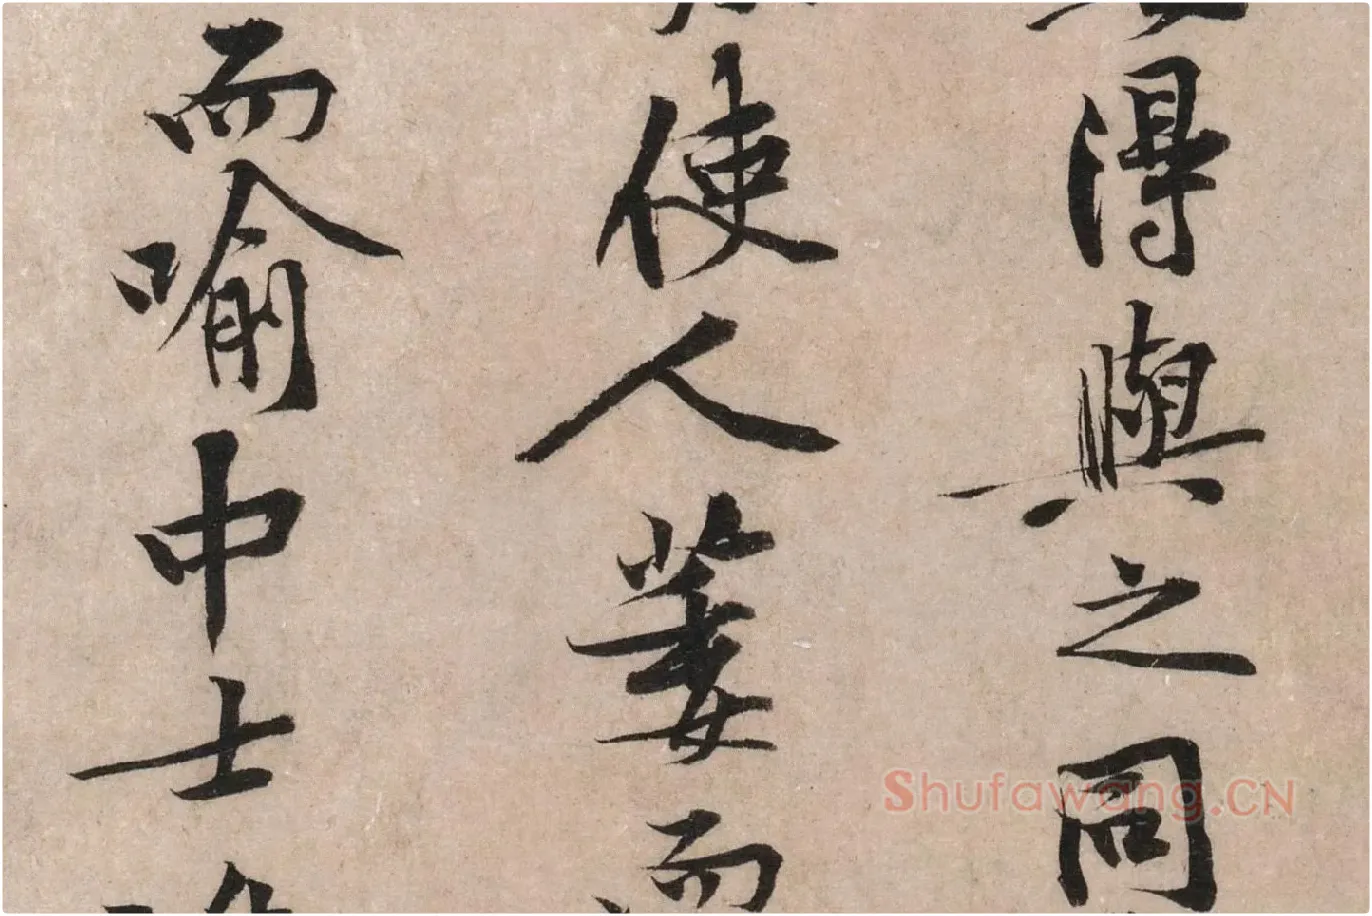 得與之同
使人萋而
而喻中士
Shufawang.CN